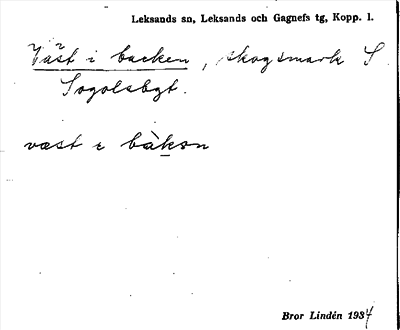 Leksands sn, Leksands och Gagnefs tg, Kopp. l.
Väst i backen, skogsmark S
Sogolsbgt.
væst i bàkon
Bror Lindén 1934